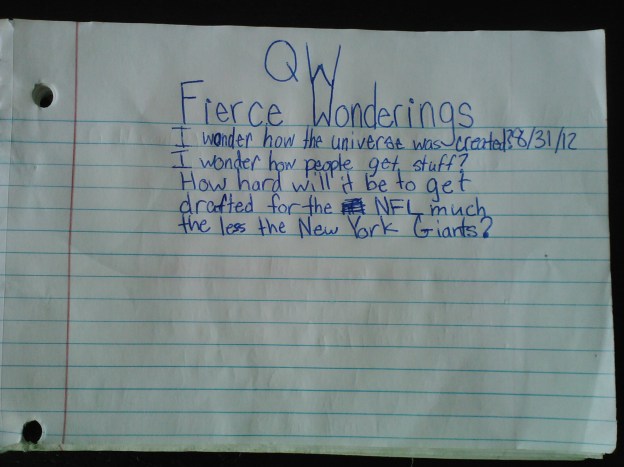 QW
Fierce Wonderings
I wonder how the universe was created? 8/31/12
I wonder how people get stuff?
How hard will it be to get
drafted for the NFL much
the less the New York Giants?